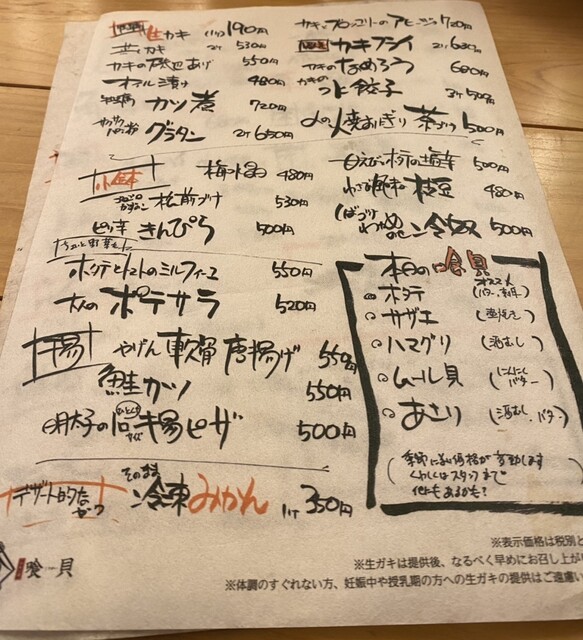 生カキ 1ヶ 190円
2ヶ 530円
カキの磯辺あげ 550円
オイル漬け 480円
牡蠣 カツ煮 720円
グラタン 2ヶ 650円
カキとブロッコリーのアヒージョ 720円
カキフライ 2ヶ 680円
カキのなめろう 680円
カキの水餃子 3ヶ 500円
〆の焼おにぎり茶づけ 500円
小鉢
梅水晶 480円
松前づけ 530円
ピリ辛 きんぴら 500円
甘えびとホタテの塩辛 500円
わさび風味 枝豆 480円
わかめのせ 冷奴 500円
ちょいと野菜を
ホタテとトマトのミルフィーユ 550円
大人の ポテサラ 520円
揚
やげん軟骨唐揚げ 550円
鮭カツ 550円
明太子のひとくちサイズ揚ピザ 500円
デザート的な
そのまま 冷凍みかん 1ヶ 350円
本日の喰貝
オススメ
ホタテ
サザエ (壺焼き)
ハマグリ (酒むし)
ムール貝 (にんにくバター)
あさり (酒むし、バター)
(季節により価格が変動します
くわしくはスタッフまで
他にもあるかも?)
喰貝
※表示価格は税別と
※生ガキは提供後、なるべく早めにお召し上が
※体調のすぐれない方、妊娠中や授乳期の方への生ガキの提供はご遠慮い